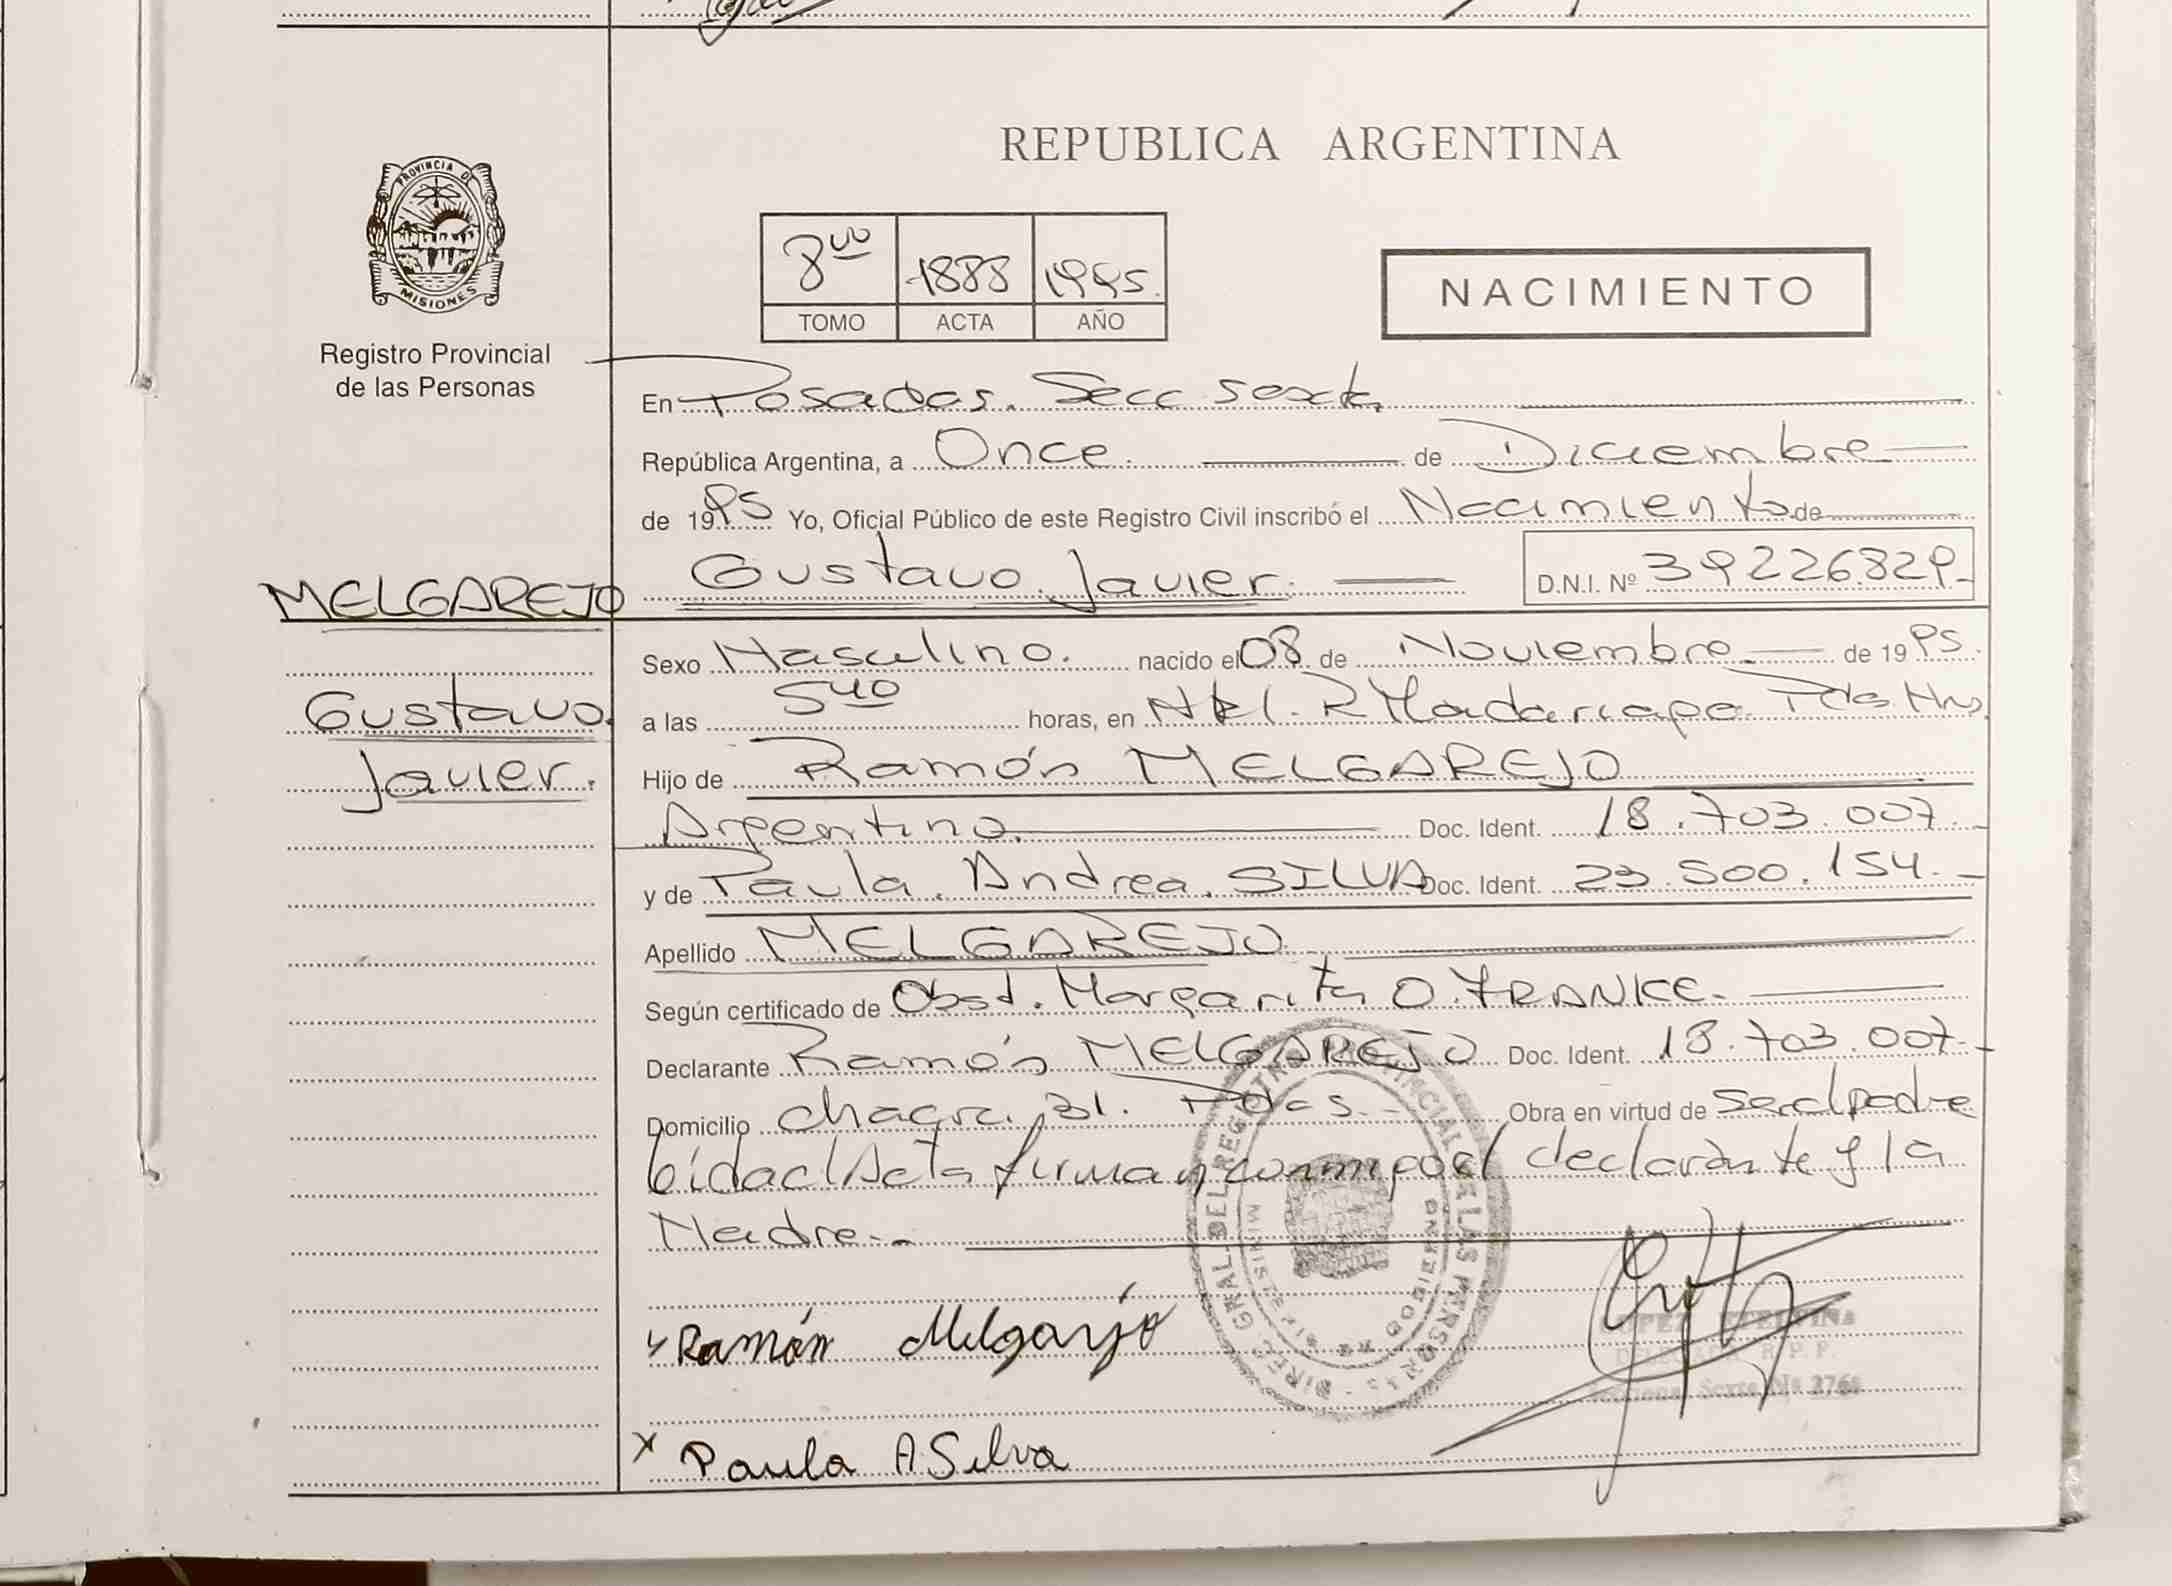 REPUBLICA ARGENTINA
PROVINCIA DE
MISIONES
Registro Provincial
de las Personas
8vo 1888 1995.
TOMO ACTA AÑO
NACIMIENTO
En Posadas. Secc sexta
República Argentina, a Once de Diciembre
de 1995 Yo, Oficial Público de este Registro Civil inscribó el Nacimiento de
MELGAREJO Gustavo Javier. D.N.I. Nº 39226829
Sexo Masculino. nacido el 08 de Noviembre de 1995.
Gustavo
Javier.
a las 5 40 horas, en R Madariaga. Pdas Mnes
Hijo de Ramón MELGAREJO
Argentino. Doc. Ident. 18.703.007.
y de Paula Andrea SILVA Doc. Ident. 23.500.154.
Apellido MELGAREJO
Según certificado de Obst. Margarita O. FRANKE.
Declarante Ramón MELGAREJO Doc. Ident. 18.703.007
Domicilio chacra 31. Pdas Obra en virtud de ser el padre
Leida el Acta firman conmigo el declarante y la
Madre.
DIREC. GRAL. DEL REGISTRO PROVINCIAL DE LAS PERSONAS
Ramón Melgarejo
LOPEZ
DELEGADA R. P. P.
Seccional Sexta
x Paula A Silva